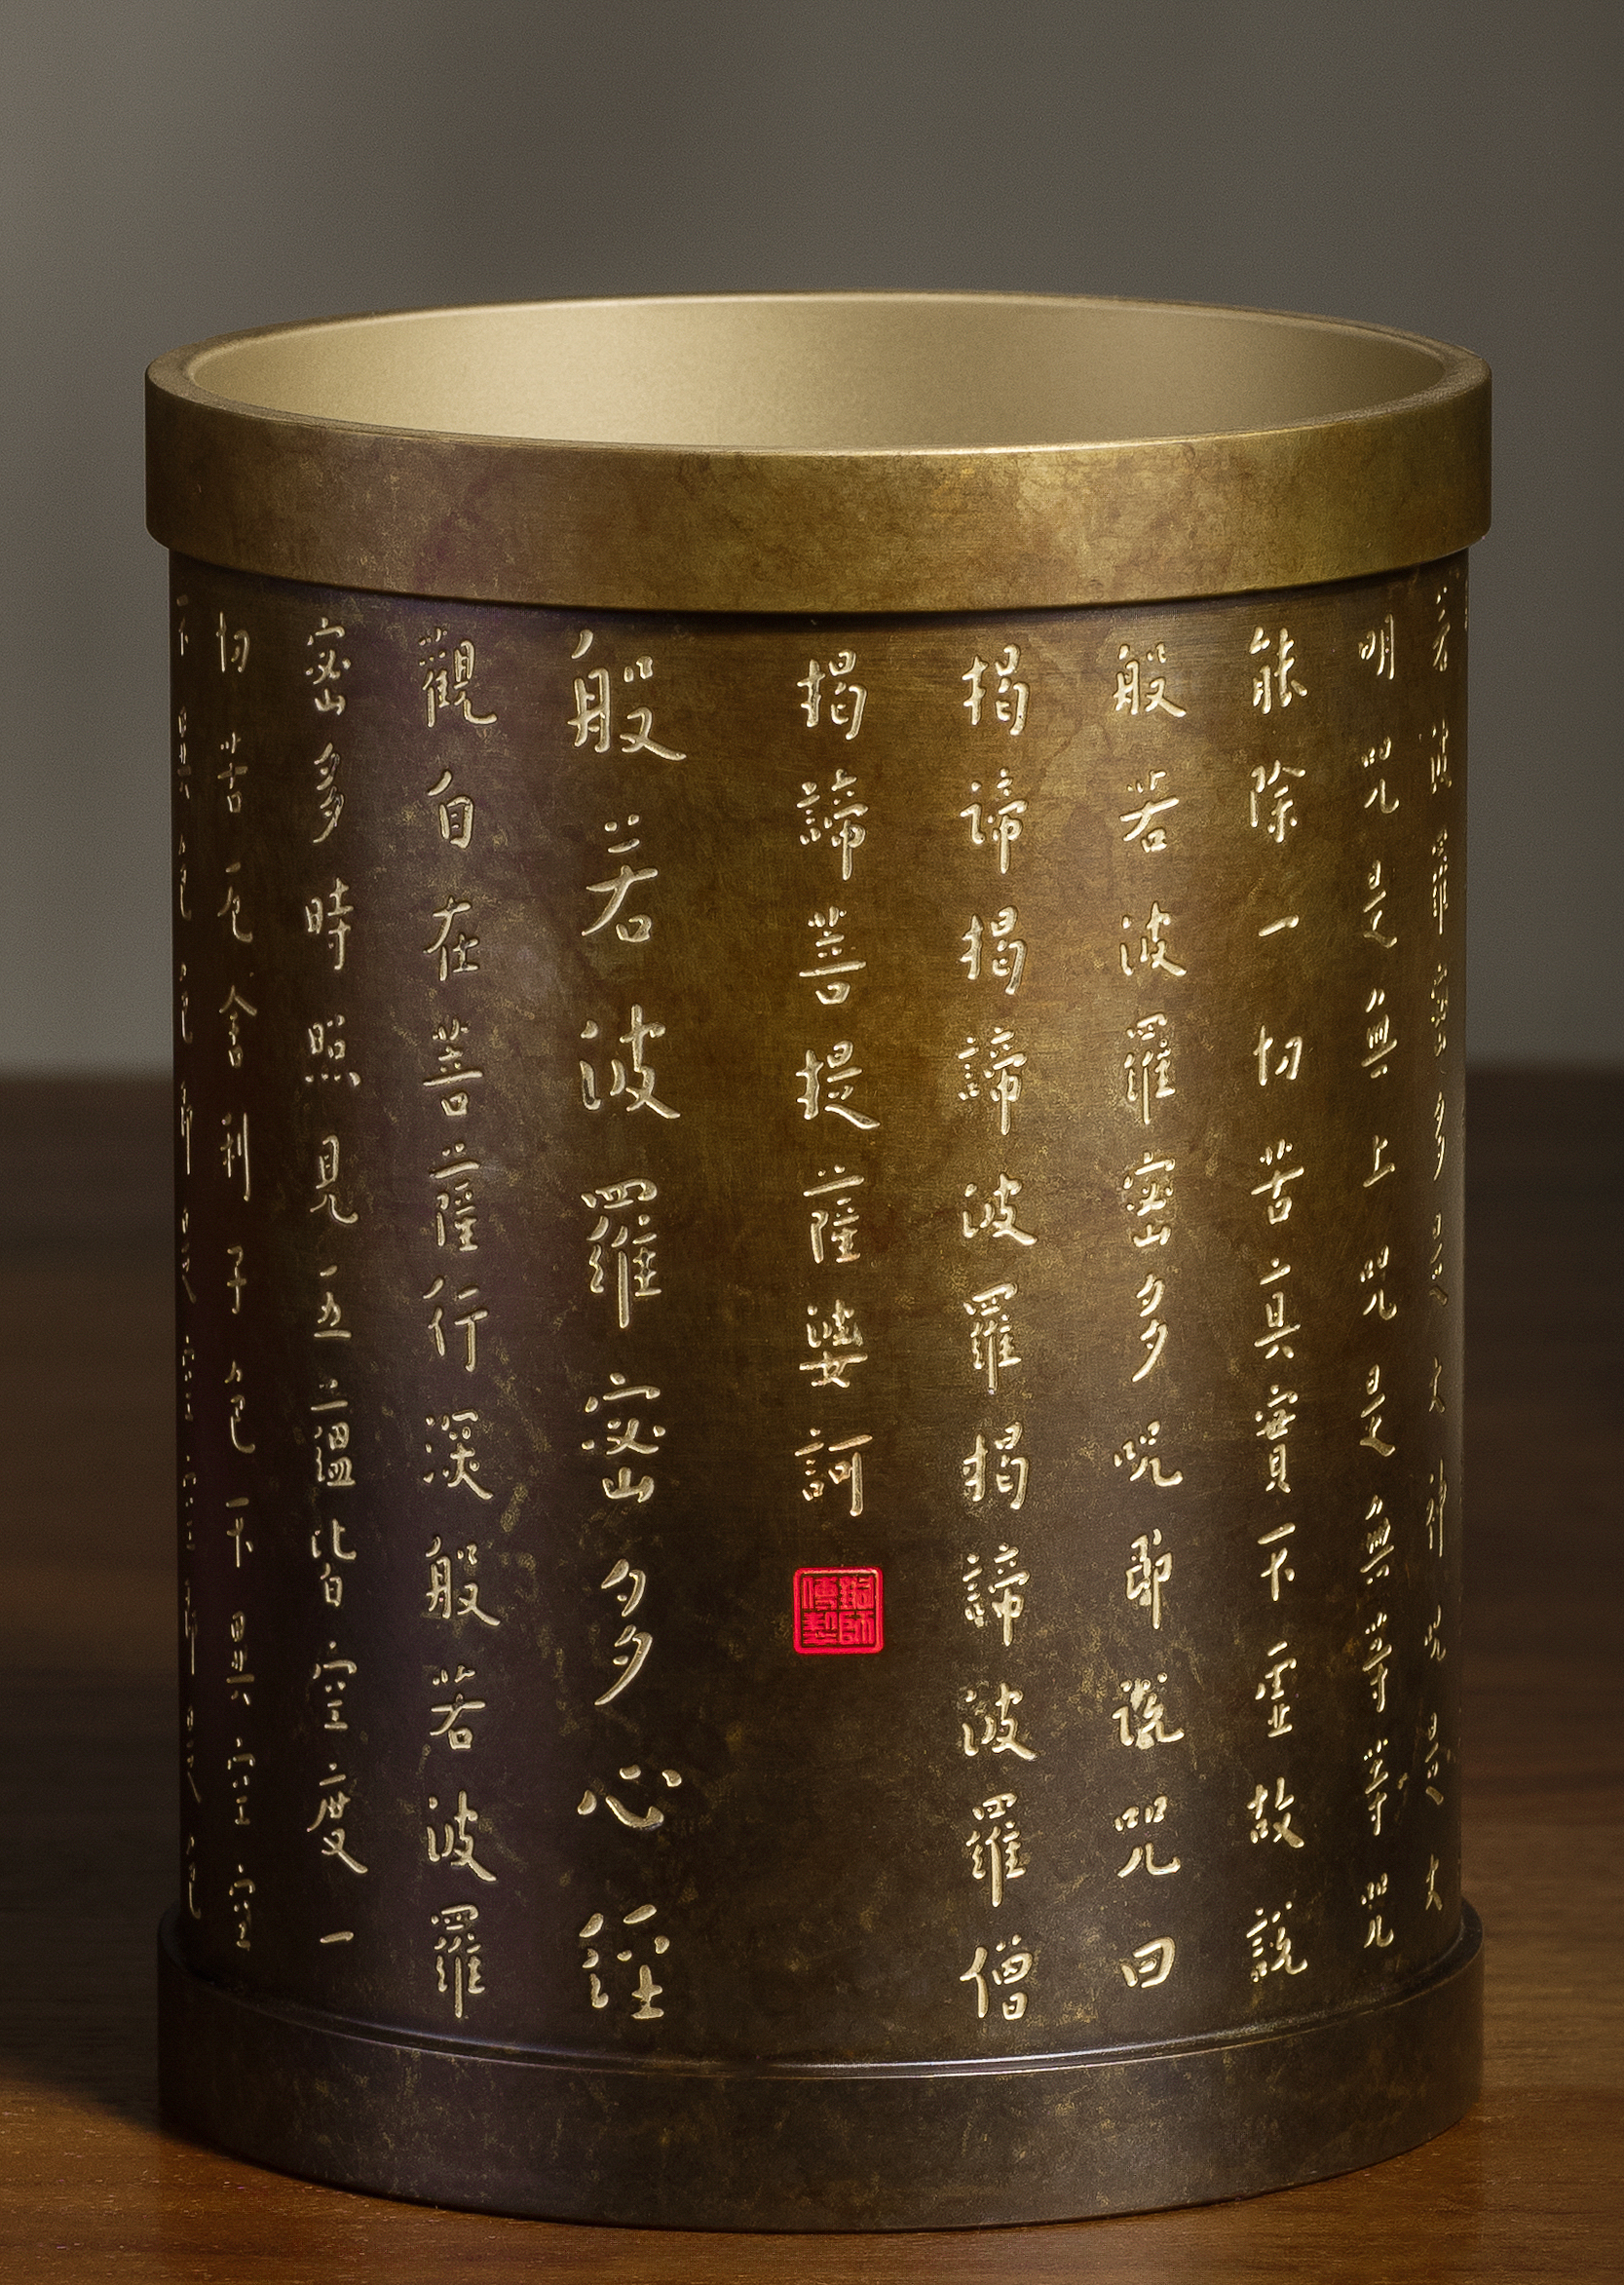 若波羅密多是大神咒是大
明咒是無上咒是無等等咒
能除一切苦真實不虛故說
般若波羅密多咒即說咒曰
揭諦揭諦波羅揭諦波羅僧
揭諦菩提薩婆訶
銅師傅製
般若波羅密多心經
觀自在菩薩行深般若波羅
密多時照見五蘊皆空度一
切苦厄舍利子色不異空空
不異色色即是空空即是色